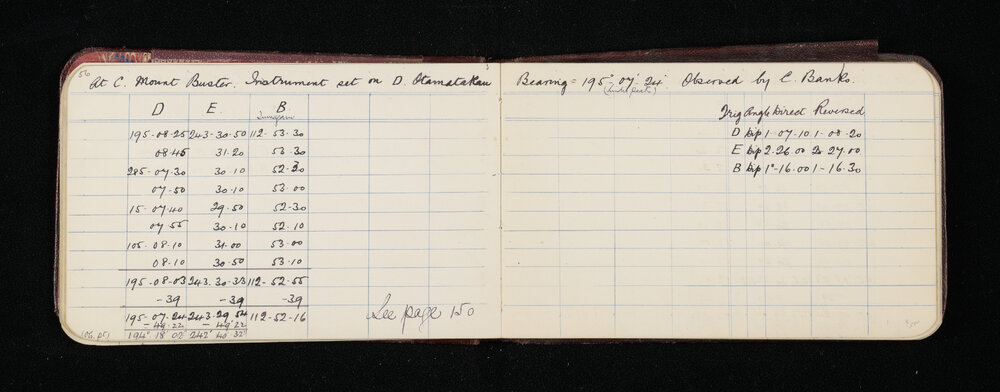 56
At C. Mount Buster. Instrument set on D. Otamatakau
D E. B
195-08-25 243-30-50 112-53-30
08-45 31-20 53-30
285-07-30 30-10 52-30
07-50 30-10 53-00
15-07-40 29-50 52-30
07-55 30-10 52-10
105-08-10 31-00 53-00
08-10 30-50 53-10
195-08-03 243-30-33 112-52-55
-39 -39 -39
195-07-24 243-29-54 112-52-16
-49-22 -49-22
194° 18' 02" 242° 40' 32"
See page 150
Bearing = 195° 07' 24" Observed by C. Banks.
Trig Angle Direct Reversed
D Dip 1-07-10 1-08-20
E Dip 2-26-00 2-27-00
B Dip 1°-16-00 1-16-30